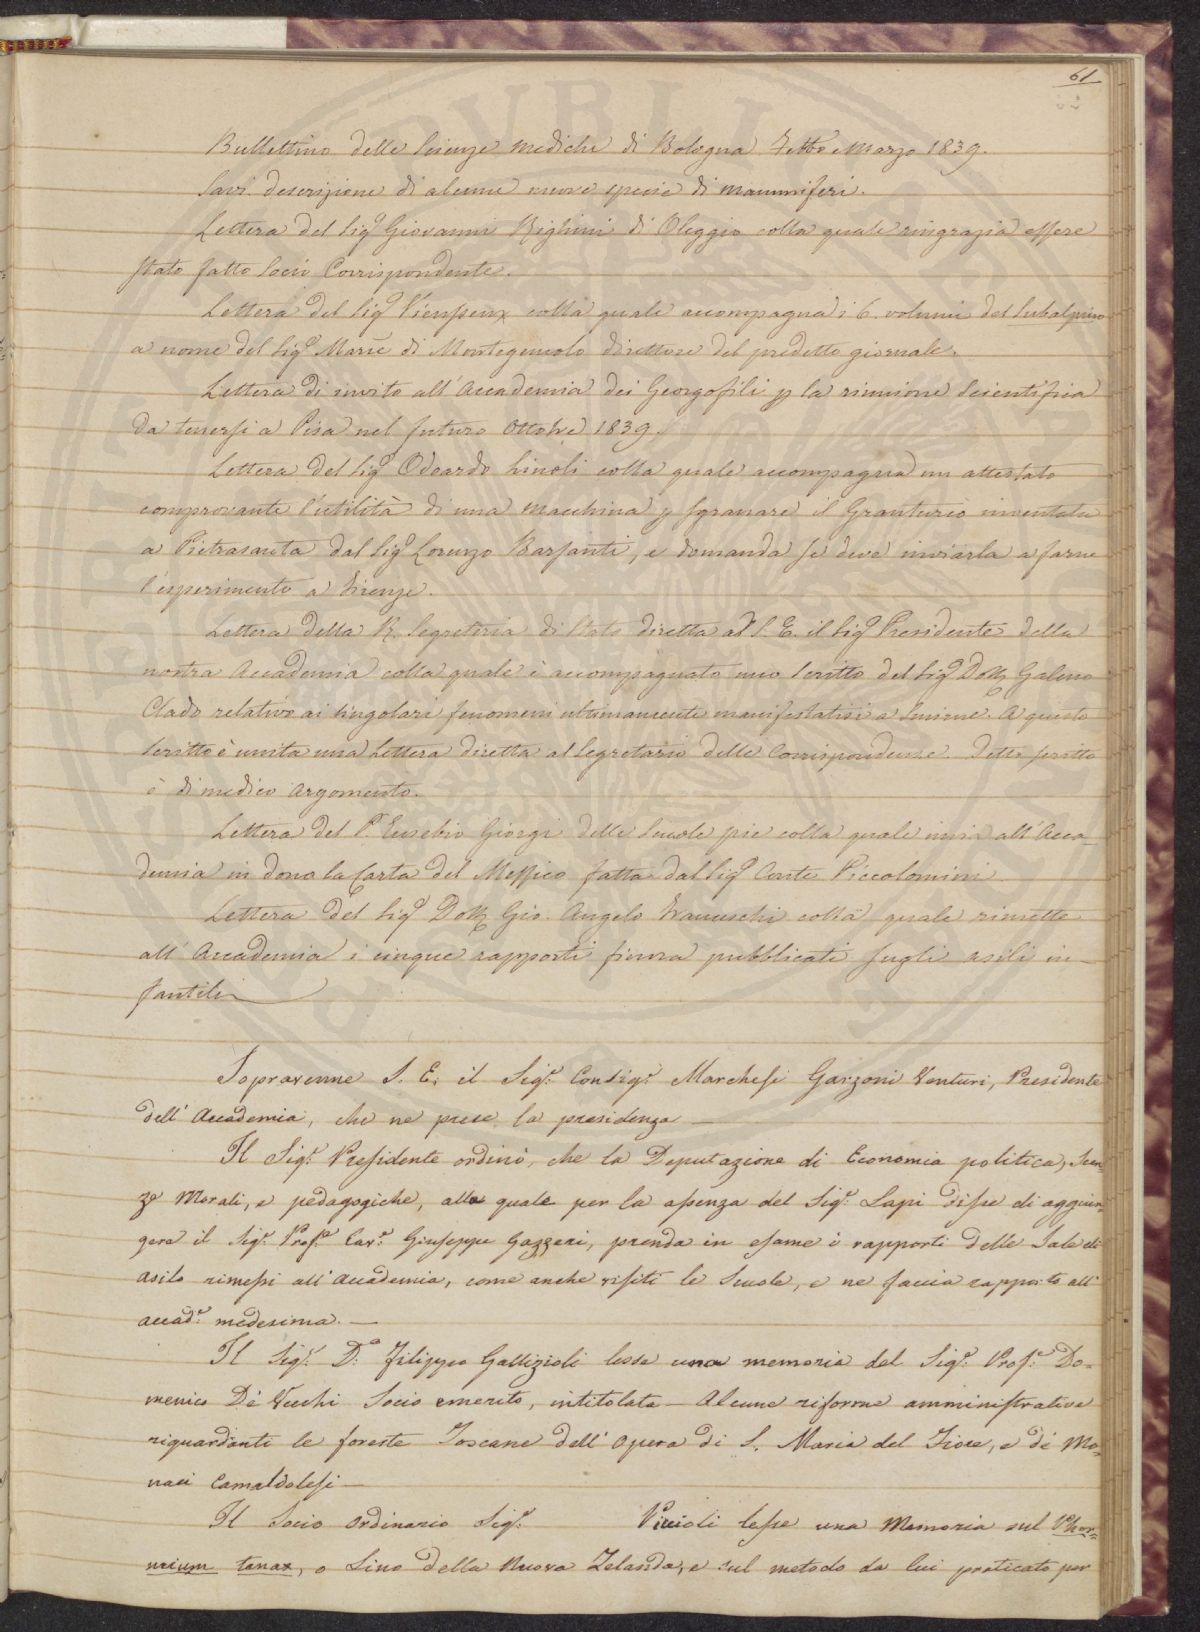 61
Bullettino delle Scienze Mediche di Bologna Febbo e Marzo 1839.
Savi descrizione di alcune nuove specie di mammiferi.
Lettera del Sigr Giovanni Righini di Oleggio colla quale ringrazia essere
stato fatto Socio Corrispondente.
Lettera del Sigr Vieusseux colla quale accompagna i 6. volumi del Subalpino
a nome del Sigr March di Montezemolo direttore del predetto giornale.
Lettera di invito all'Accademia dei Georgofili p la riunione Scientifica
da tenersi a Pisa nel futuro Ottobre 1839.
Lettera del Sigr Odoardo Linoli colla quale accompagna un attestato
comprovante l'utilità di una Macchina p sgranare il Granturco inventata
a Pietrasanta dal Sigr Lorenzo Barsanti, e domanda se deve inviarla a farne
l'esperimento a Firenze.
Lettera della R. Segreteria di Stato diretta ad S. E. il Sigr Presidente della
nostra Accademia colla quale è accompagnato uno Scritto del Sigr Dott Galeno
Clado relativo ai singolari fenomeni ultimamente manifestatisi a Smirne. A questo
Scritto è unita una Lettera diretta al Segretario delle Corrispondenze. Detto scritto
è di medico Argomento.
Lettera del P. Eusebio Giorgi delle Scuole pie colla quale invia all'Acca-
demia in dono la Carta del Messico fatta dal Sigr Conte Piccolomini
Lettera del Sigr Dott Gio. Angelo Franceschi colla quale rimette
all'Accademia i cinque rapporti finora pubblicati sugli asili in-
fantili
Sopravenne S. E. il Sigr. Consigr. Marchese Garzoni Venturi, Presidente
dell'Accademia, che ne prese la presidenza —
Il Sigr. Presidente ordinò, che la Deputazione di Economia politica, Scien-
ze Morali, e pedagogiche, alla quale per la assenza del Sigr. Lapi disse di aggiun-
gere il Sigr. Profre Cavr. Giuseppe Gazzeri, prenda in esame i rapporti delle Sale di
asilo rimessi all'Accademia, come anche visiti le Scuole, e ne faccia rapporto all'
accad.a medesima. —
Il Sigr. D. Filippo Gallizioli lesse una memoria del Sigr. Profr. Do-
menico De' Vecchi Socio emerito, intitolata — Alcune riforme amministrative
riguardanti le foreste Toscane dell'Opera di S. Maria del Fiore, e de' Mo-
naci Camaldolesi —
Il Socio Ordinario Sigr. Piccioli lesse una Memoria sul Phor-
mium tenax, o Lino della Nuova Zelanda, e sul metodo da lui praticato per